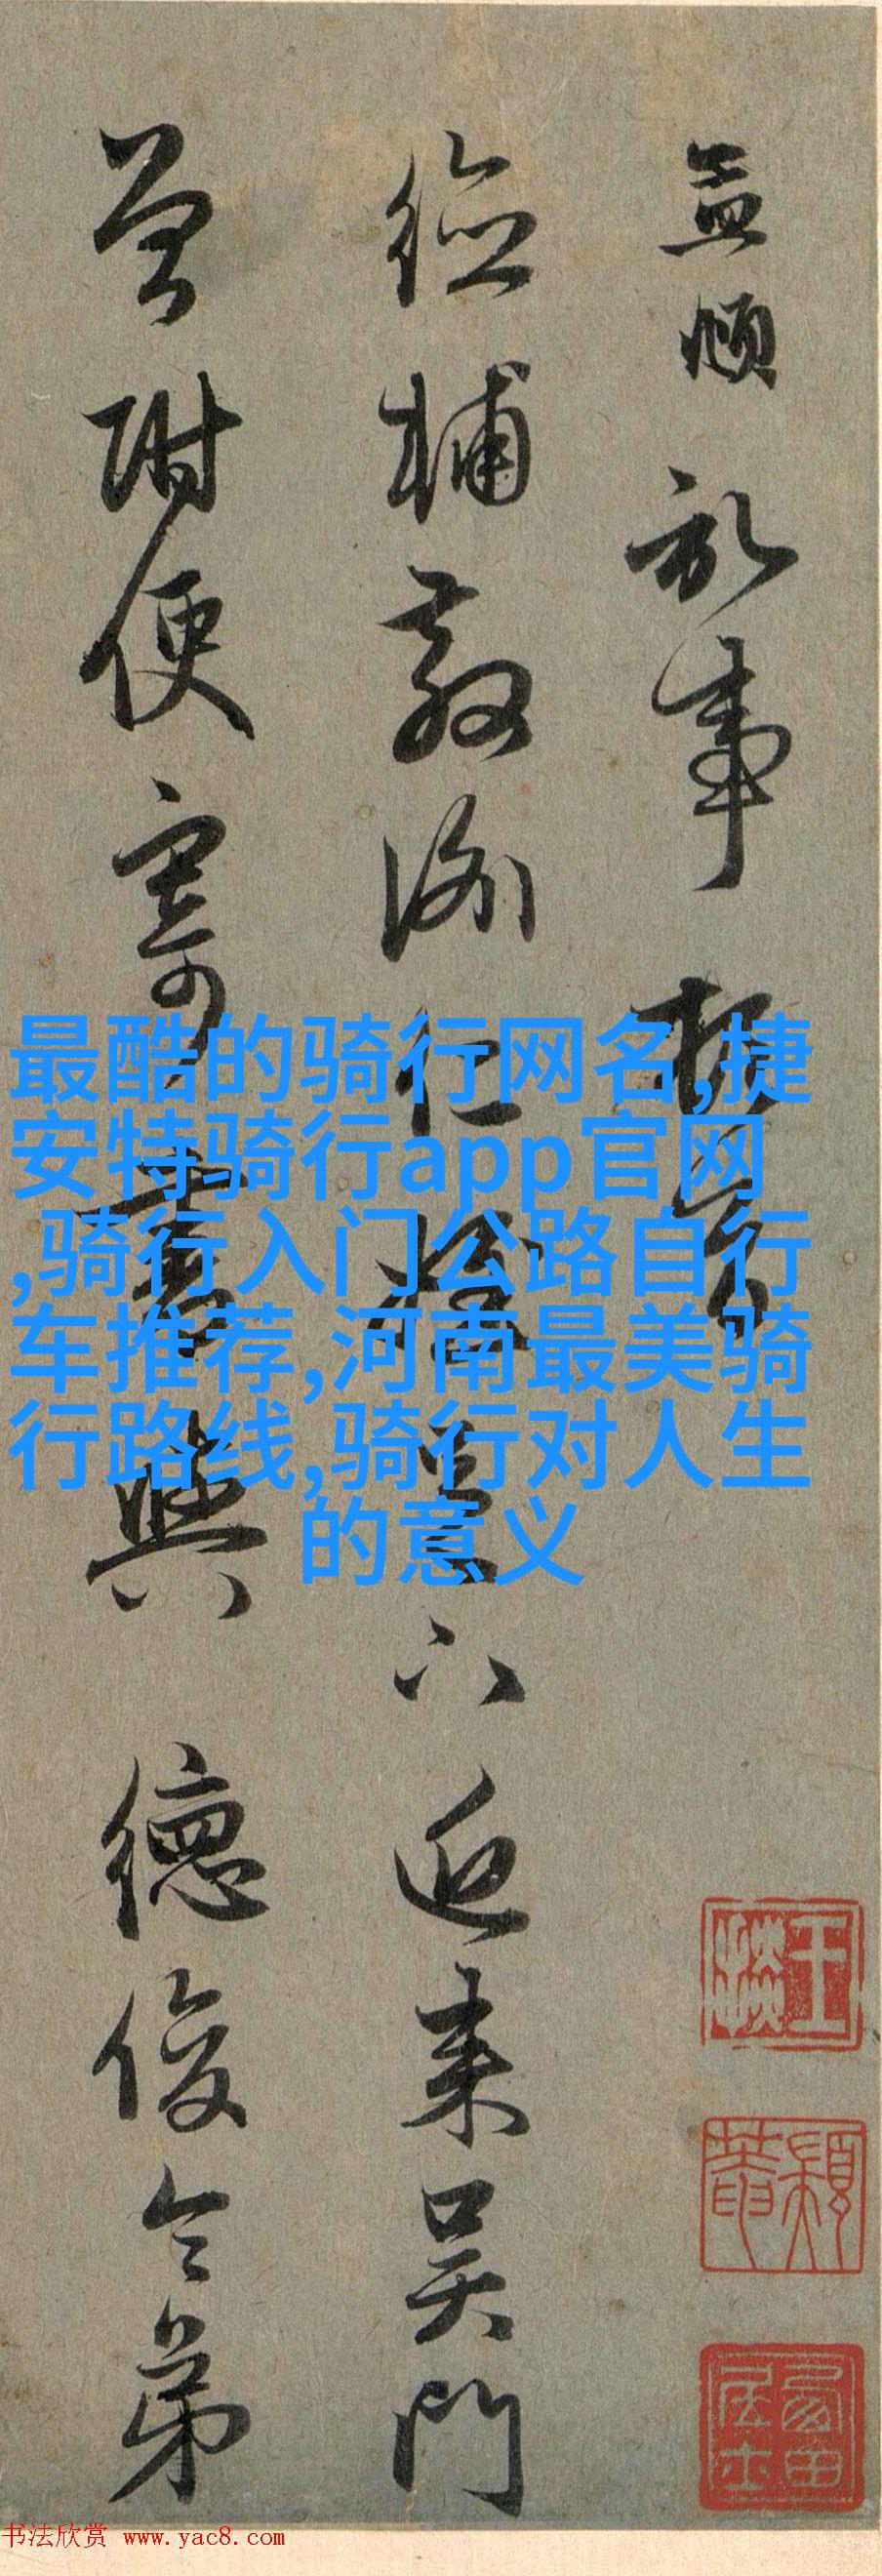 孟頫記事頓首
德輔教諭仁姪足下近來吳門
曾附便寄書與德俊令弟
最酷的骑行网名,捷
安特骑行app官网
,骑行入门公路自行
车推荐,河南最美骑
行路线,骑行对人生
的意义
书法欣赏 www.yac8.com